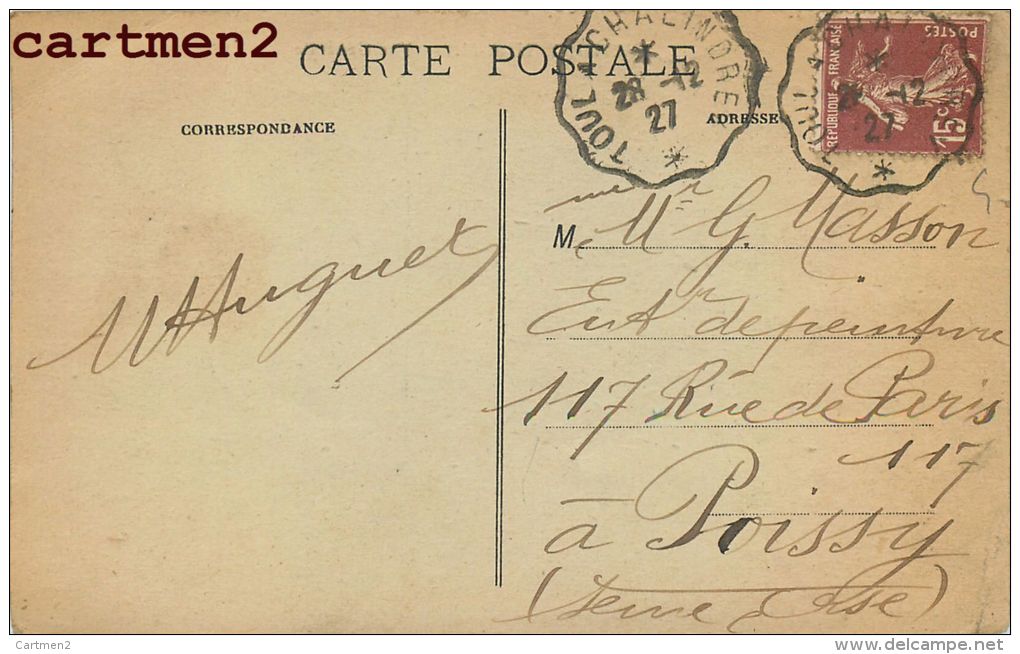 cartmen2
CARTE POSTALE
TOUL A CHALINDREY
28 -12
27
TOUL A CHAL
28 -12
27
POSTES
REPUBLIQUE FRANÇAISE
15c
CORRESPONDANCE
ADRESSE
M Mr G. Masson
Entr de peinture
117 Rue de Paris
117
à Poissy
(Seine & Oise)
Huguet
Cartmen2
www.delcampe.net